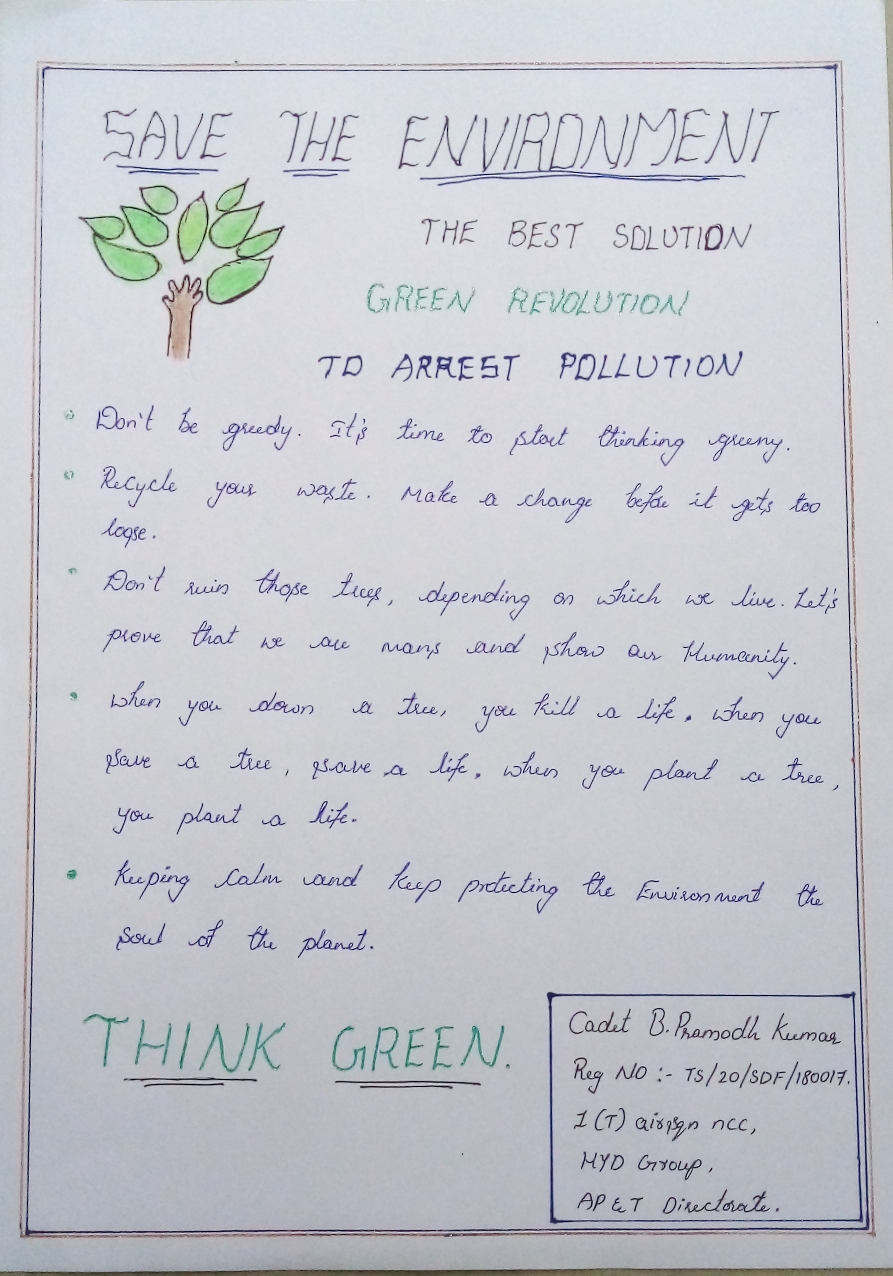 SAVE THE ENVIRONMENT
THE BEST SOLUTION
GREEN REVOLUTION
TO ARREST POLLUTION
Don't be greedy. It's time to start thinking greeny.
Recycle your waste. Make a change before it gets too
loose.
Don't ruin those trees, depending on which we live. Let's
prove that we are mans and show our Humanity.
When you down a tree, you kill a life. when you
save a tree, save a life. when you plant a tree,
you plant a life.
Keeping Calm and keep protecting the Environment the
soul of the planet.
THINK GREEN.
Cadet B. Pramodh Kumar
Reg NO :- TS/20/SDF/180017.
1 (T) air sqn ncc,
HYD Group,
AP & T Directorate.